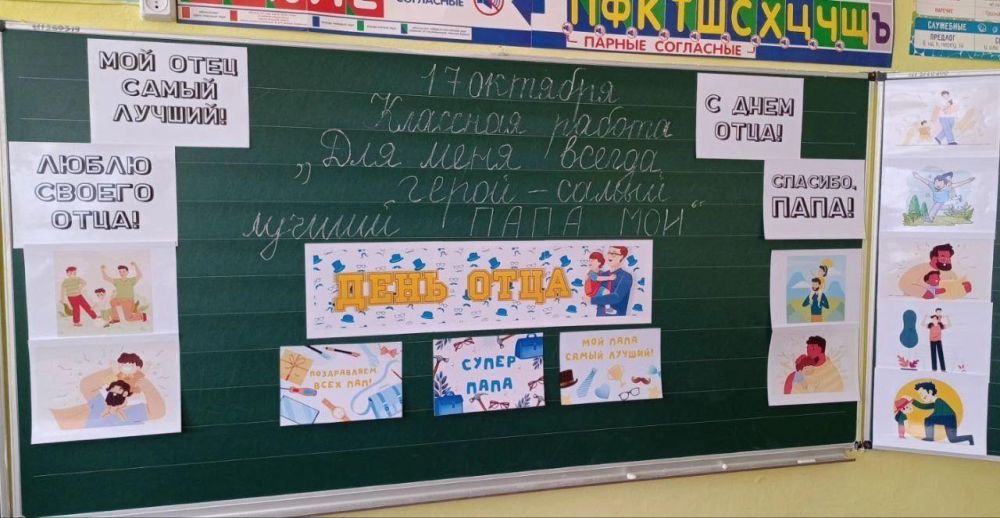 СОГЛАСНЫЕ
ПФКТШСХЦЧЩЪ
ПАРНЫЕ СОГЛАСНЫЕ
НАРЕЧИЕ
СЛУЖЕБНЫЕ
ПРЕДЛОГ
МОЙ ОТЕЦ
САМЫЙ
ЛУЧШИЙ!
ЛЮБЛЮ
СВОЕГО
ОТЦА!
17 октября
Классная работа
„Для меня всегда
герой – самый
лучший ПАПА МОЙ“
С ДНЕМ
ОТЦА!
СПАСИБО,
ПАПА!
ДЕНЬ ОТЦА
ПОЗДРАВЛЯЕМ
ВСЕХ ПАП!
СУПЕР
ПАПА
МОЙ ПАПА
САМЫЙ ЛУЧШИЙ!